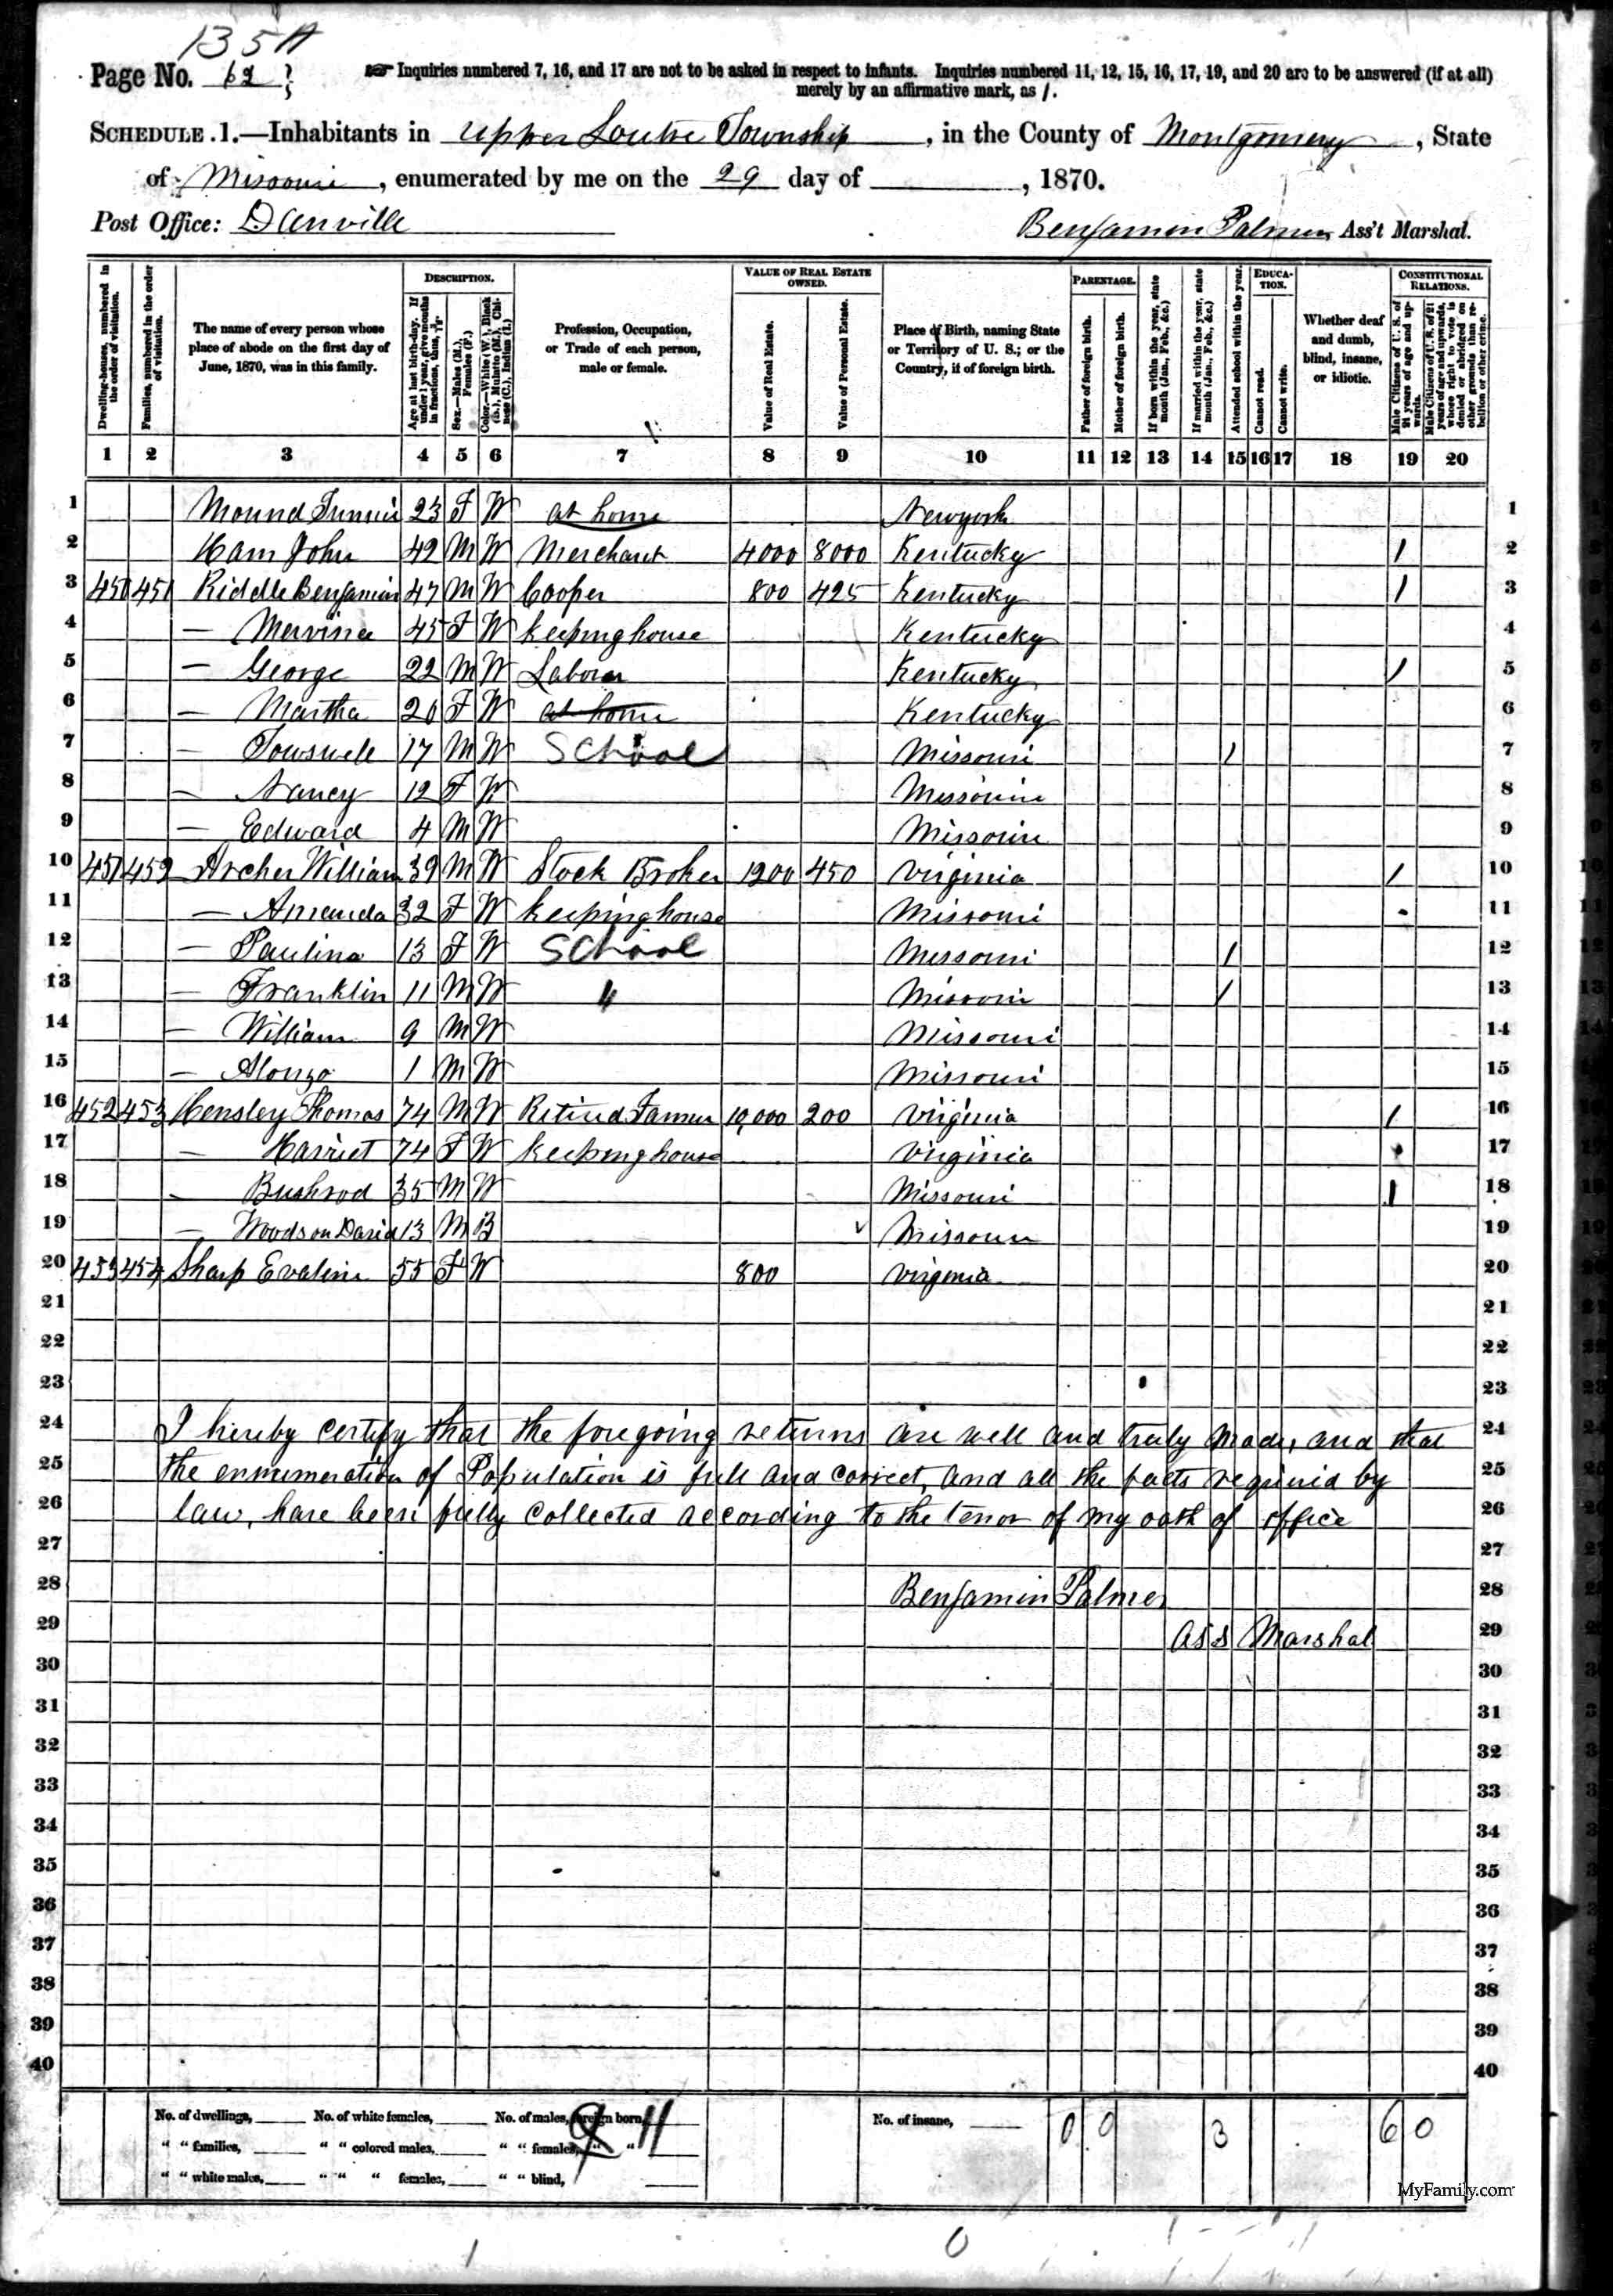 135A
Page No. 62
Inquiries numbered 7, 16, and 17 are not to be asked in respect to infants. Inquiries numbered 11, 12, 15, 16, 17, 19, and 20 are to be answered (if at all)
merely by an affirmative mark, as /.
SCHEDULE 1.—Inhabitants in Upper Loutre Township, in the County of Montgomery, State
of Missouri, enumerated by me on the 29 day of , 1870.
Post Office: Danville
Benjamin Palmer, Ass't Marshal.
Dwelling-houses, numbered in the order of visitation.
Families, numbered in the order of visitation.
The name of every person whose place of abode on the first day of June, 1870, was in this family.
DESCRIPTION.
Age at last birth-day. If under 1 year, give months in fractions, thus,
Sex.—Males (M.), Females (F.)
Color.—White (W.), Black (B.), Mulatto (M.), Chinese (C.), Indian (I.)
Profession, Occupation, or Trade of each person, male or female.
VALUE OF REAL ESTATE OWNED.
Value of Real Estate.
Value of Personal Estate.
Place of Birth, naming State or Territory of U. S.; or the Country, if of foreign birth.
PARENTAGE.
Father of foreign birth.
Mother of foreign birth.
If born within the year, state month (Jan., Feb., &c.)
If married within the year, state month (Jan., Feb., &c.)
Attended school within the year.
EDUCATION.
Cannot read.
Cannot write.
Whether deaf and dumb, blind, insane, or idiotic.
CONSTITUTIONAL RELATIONS.
Male Citizens of U. S. of 21 years of age and upwards.
Male Citizens of U. S. of 21 years of age and upwards, whose right to vote is denied or abridged on other grounds than rebellion or other crime.
1 2 3 4 5 6 7 8 9 10 11 12 13 14 15 16 17 18 19 20
1 Mound 23 F W at home Newyork 1
2 Ham John 42 M W Merchant 4000 8000 Kentucky / 2
3 450 451 Riddle Benjamin 47 M W Cooper 800 425 Kentucky / 3
4 — Mervina 45 F W keeping house Kentucky 4
5 — George 22 M W Laborer Kentucky / 5
6 — Martha 20 F W at home Kentucky 6
7 — 17 M W School Missouri / 7
8 — Nancy 12 F W Missouri 8
9 — Edward 4 M W Missouri 9
10 451 452 Archer William 39 M W Stock Broker 1200 450 Virginia / 10
11 — Amanda 32 F W keeping house Missouri 11
12 — Paulina 13 F W School Missouri / 12
13 — Franklin 11 M W " Missouri / 13
14 — William 9 M W Missouri 14
15 — Alonzo 1 M W Missouri 15
16 452 453 Hensley Thomas 74 M W Retired Farmer 10,000 200 Virginia / 16
17 — Harriet 74 F W keeping house Virginia 17
18 — Bushrod 35 M W Missouri / 18
19 — Woodson David 13 M B Missouri 19
20 453 454 Sharp Evaline 55 F W 800 Virginia 20
21 21
22 22
23 23
24 I hereby certify that the foregoing returns are well and truly made, and that 24
25 the ennumeration of Population is full and correct, and all the facts required by 25
26 law, have been fully collected according to the tenor of my oath of office 26
27 27
28 Benjamin Palmer 28
29 Ass Marshal 29
30 30
31 31
32 32
33 33
34 34
35 35
36 36
37 37
38 38
39 39
40 40
No. of dwellings, No. of white females, No. of males, foreign born, No. of insane,
" " families, " " colored males, " " females, " "
" " white males, " " " females, " " blind,
9 11
0 0 3 6 0
MyFamily.com
0